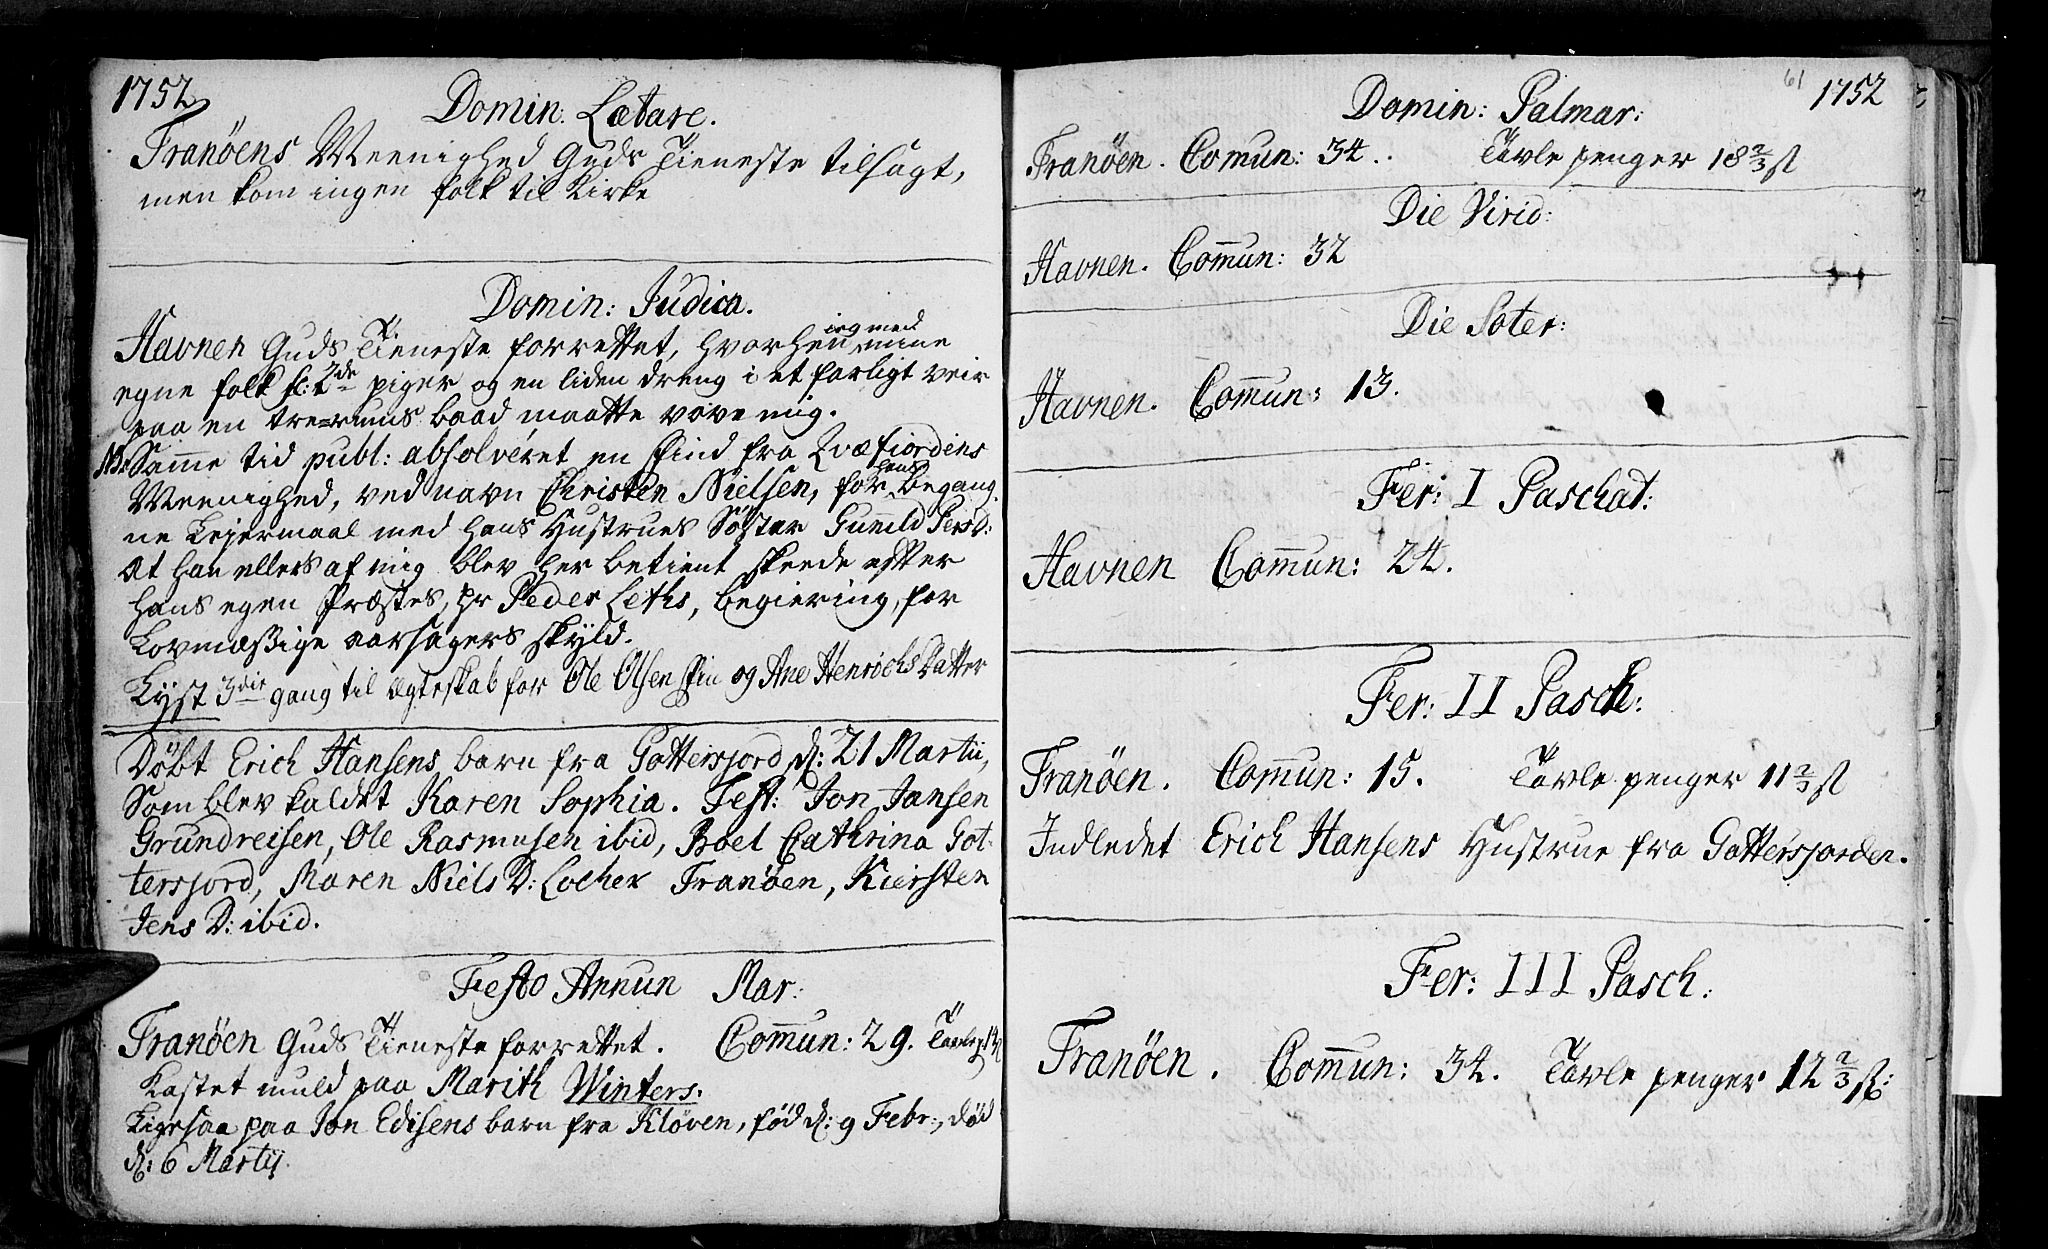 1752
Domin: Lætare.
Tranöens Meenighed Guds Tieneste tilsagt,
men kom ingen folk til Kirke
Domin: Judica.
Havnen Guds Tieneste forrettet, hvorhen ieg med mine
egne folk sc: 2de piger og en liden dreng i et farligt veir
paa en tre=rums baad maatte vove mig.
NB: Samme tid publ: absolvéret en Find fra Qvæfiordens
Meenighed, ved navn Christen Nielsen, for hans begang-
ne Lejermaal med hans Hustrues Söster Gunnild Pers D:
At han ellers af mig blev her betient skeede efter
hans egen Præstes, hr Peder Leths, begiering, for
Lovmæssige aarsagers skyld.
Lyst 3die gang til Ægteskab for Ole Olsen Fin og Ane Henrichsdatter
Döbt Erich Hansens barn fra Gottersjord d: 21 Martii,
Som blev kaldet Karen Sophia. Test: Jon Jansen
Grundreisen, Ole Rasmusen ibid, Boel Cathrina Got-
tersjord, Maren Niels D: Locher Tranöen, Kiersten
Jens D: ibid.
Festo Annun Mar:
Tranöen Guds Tieneste forrettet. Comun: 29. Tavlep
Kastet muld paa Marith Winters:
Ligesaa paa Jon Edisens barn fra Klöven, föd d: 9 Febr:, död
d: 6 Martij.
61 1752
Domin: Palmar:
Tranöen. Comun: 34.. Tavle penger 18 2/3 sl
Die Virid:
Havnen. Comun: 32
Die Soter:
Havnen. Comun: 13.
Fer: I Paschat:
Havnen Comun: 24.
Fer: II Pasch:
Tranöen. Comun: 15. Tavle penger 11 2/3 sl
Indledet Erich Hansens Hustrue fra Gottersjorden.
Fer: III Pasch:
Tranöen. Comun: 34. Tavle penger 12 2/3 sl: